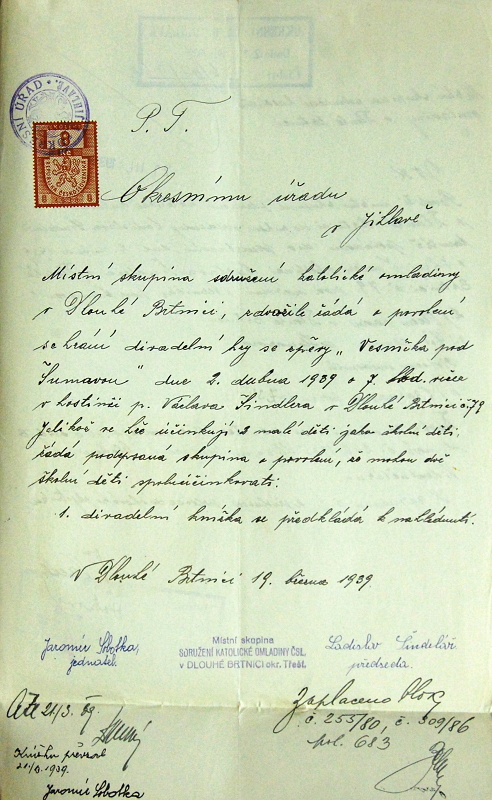 P. T.
Okresnímu úřadu
v Jihlavě
Místní skupina sdružení katolické omladiny
v Dlouhé Brtnici, zdvořile žádá o povolení
sehrání divadelní hry se zpěvy „Vesnička pod
Šumavou“ dne 2. dubna 1939 o 7. hod. večer
v hostinci p. Václava Šindlera v Dlouhé Brtnici č. 79
Jelikož ve hře účinkují 2 malé děti jako školní děti
žádá podepsaná skupina o povolení, že mohou dvě
školní děti spoluúčinkovati.
1. divadelní knížka se předkládá k nahlédnutí.
V Dlouhé Brtnici 19. března 1939
Jaromír Sobotka,
jednatel.
Místní skupina
SDRUŽENÍ KATOLICKÉ OMLADINY ČSL.
v DLOUHÉ BRTNICI okr. Třešť.
Ladislav Šindelář.
předseda.
21/3. 39.
Zaplaceno
č. 255/80, č. 309/86
pol. 683
Knížku převzal
1939.
Jaromír Sobotka
8
8 8